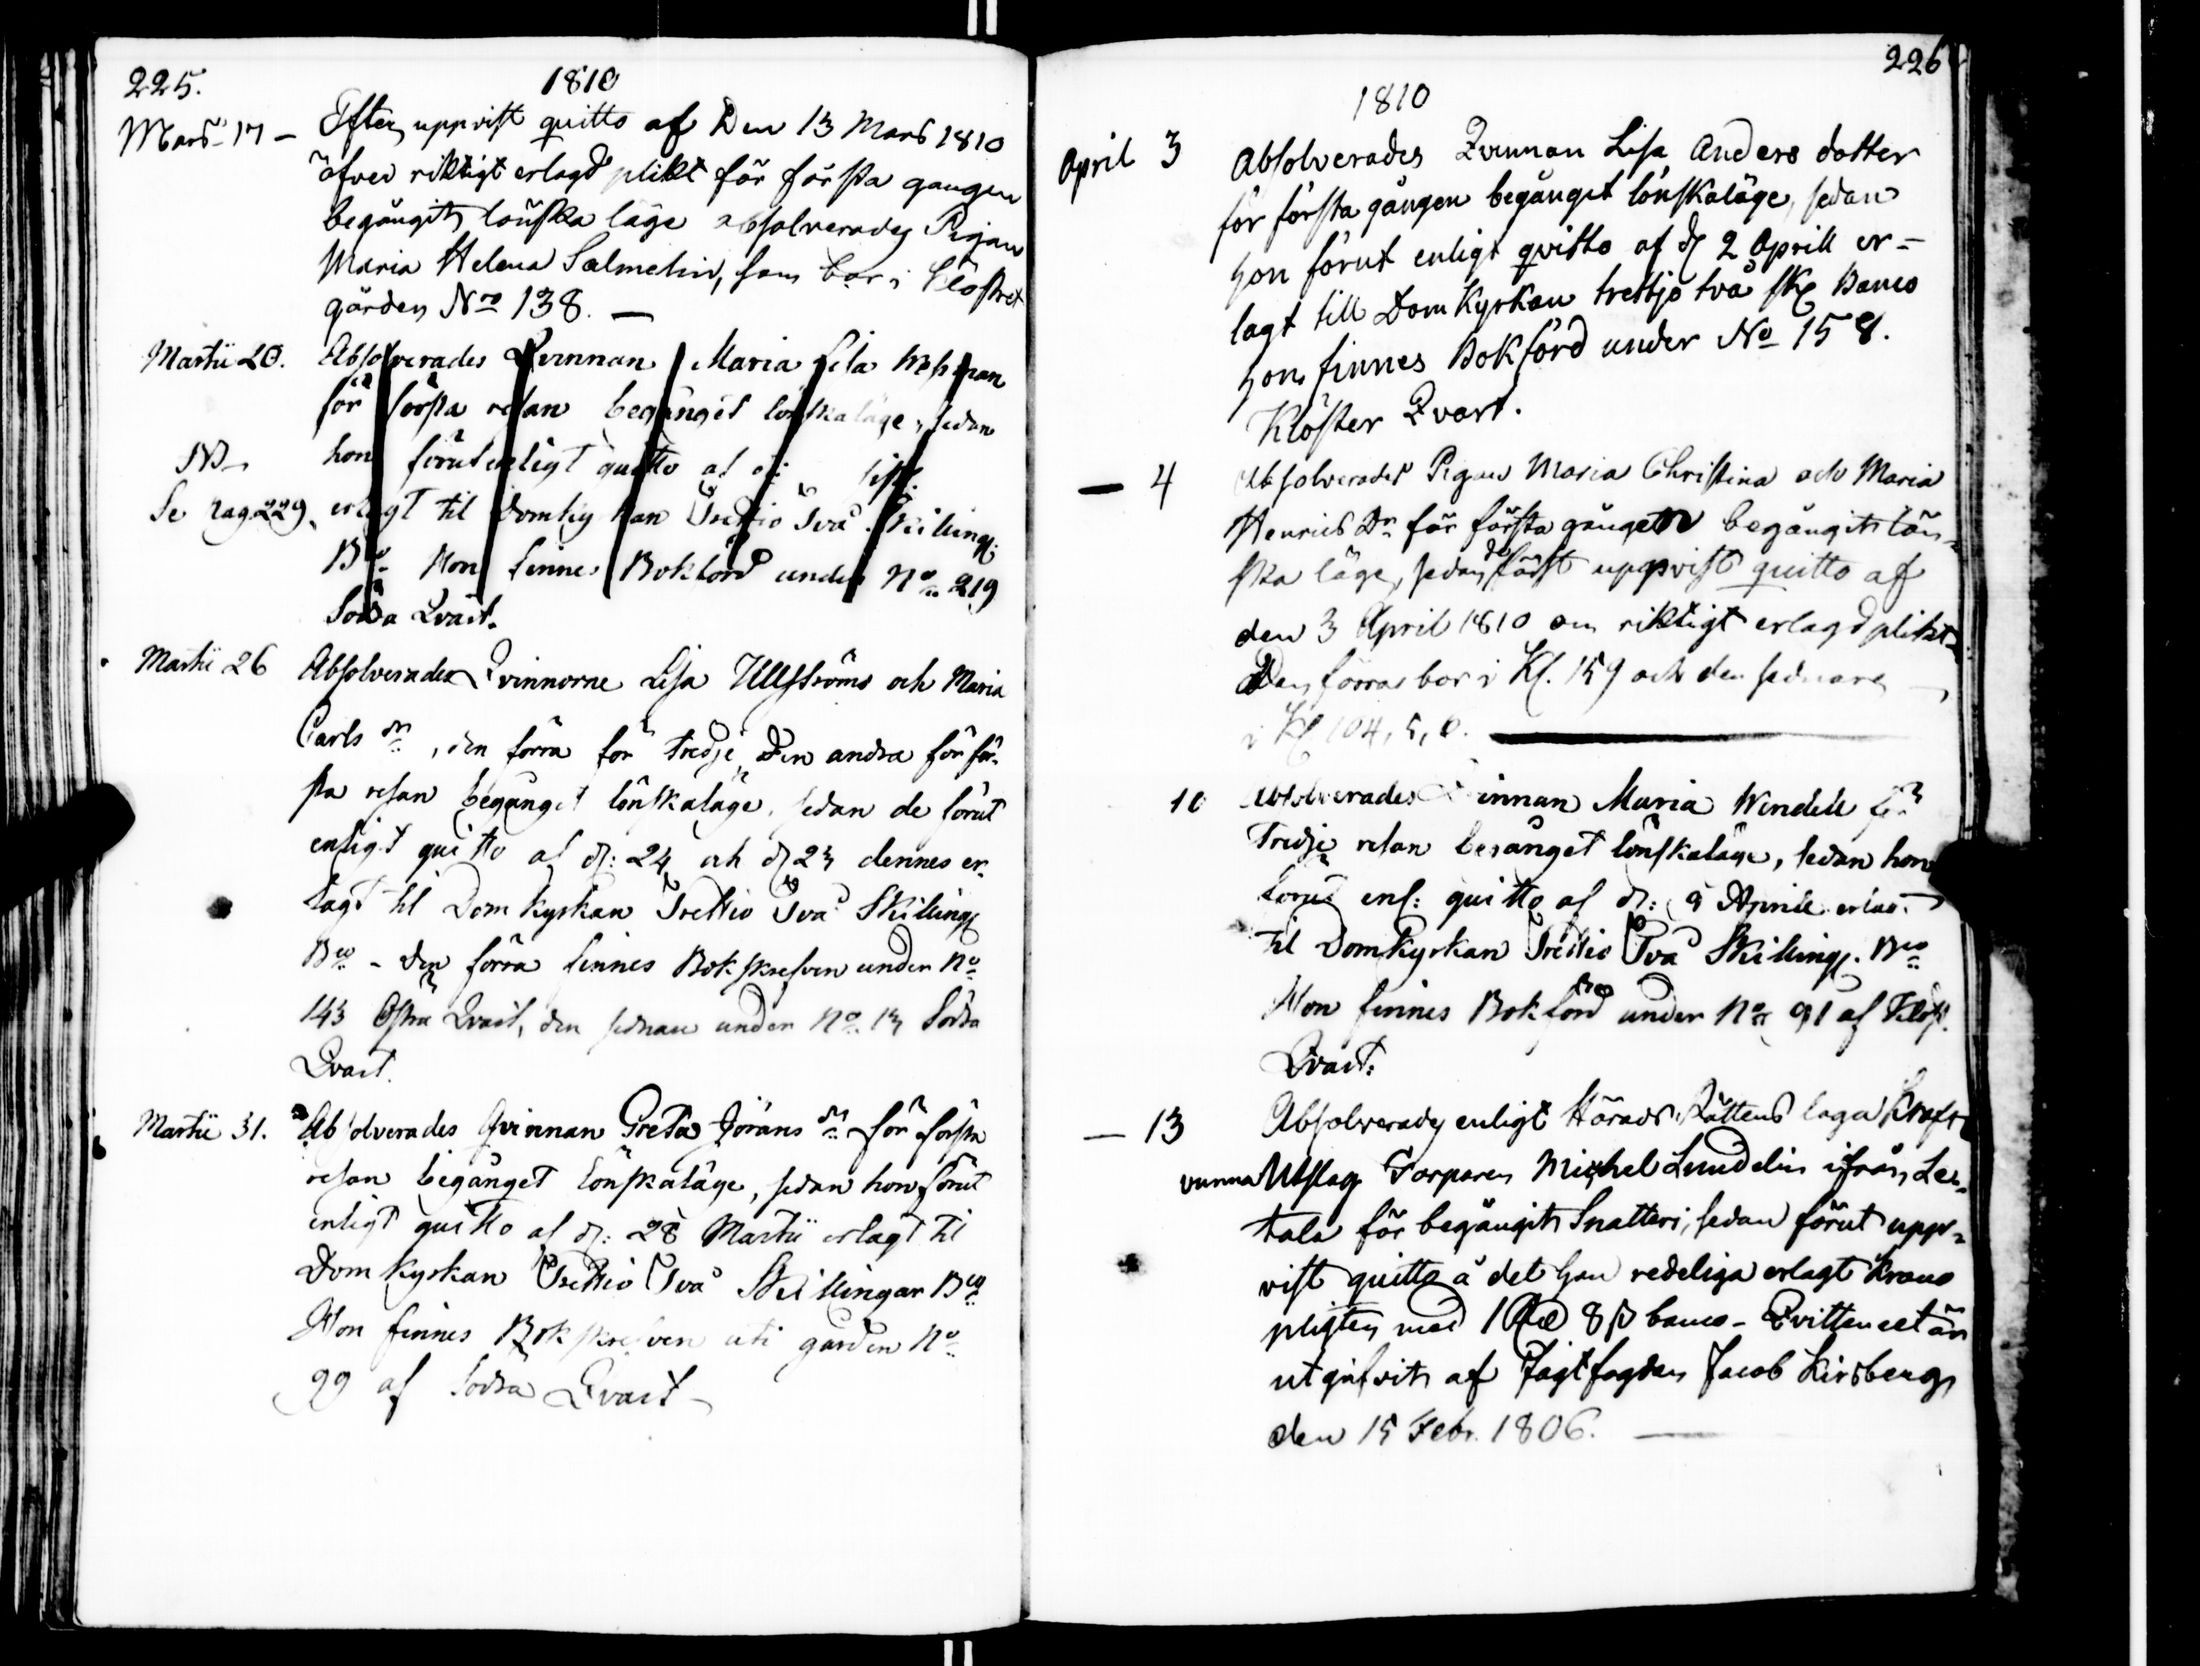 225.
1810
Mars 17 — Efter uppvist quitto af Den 13 Mars 1810
öfver riktigt erlagd plikt för första gången
begångit lönska läge absolverades Pigan
Maria Helena Salmelin, som bor i Klostret
gården Nro 138. —
Martii 20. Absolverades Qvinnan Maria Lisa
för första resan begånget lönskaläge, sedan
NB hon förut enligt quitto af d:
Se pag 229. erlagt til Domky kan Trettio Två Skilling
Bco Hon finnes Bokförd under No 219
Södra Qvart.
Martii 26 Absolverades Qvinnorne Lisa Ullströms och Maria
Carls dr, den förra för tredje, Den andra för för-
sta resan begånget lönskaläge, sedan de förut
enligt quitto af d: 24 och d 23 dennes er-
lagt til Domkyrkan Trettio Två Skilling
Bco - den förra finnes Bokskrefven under No
143 Östra Qvart, den sednare under No 13 Södra
Qvart.
Martii 31. Absolverades Qvinnan Greta Görans dr för första
resan begånget Lönskaläge, sedan hon förut
enligt quitto af d: 28 Martii erlagt til
Domkyrkan Trettio Två Skillingar Bco
Hon finnes Bokskrefven uti gården No
99 af Södra Qvart
226
1810
April 3 Absolverades Qvinnan Lisa Anders dotter
för första gången begånget lönskaläge, sedan
hon förut enligt qvitto af d 2 Aprill er-
lagt till Domkyrkan trettjo två sk Banco
hon finnes Bokförd under No 158.
Klöster Qvart.
— 4 Absolverades Pigan Maria Christina och Maria
Henrics Dr för första gången begångit lön-
ska läge, sedan de först uppvist quitto af
den 3 April 1810 om riktigt erlagd plikt
Den förra bor i Kl. 159 och den sednare
i Kl 104, 5, 6.
10 Absolverades Qvinnan Maria Windell för
Tredje resan begånget lönskaläge, sedan hon
förut enl: quitto af d: 9 Aprill erlagt
til Domkyrkan Trettio Två Skilling. Bco
Hon finnes Bokförd under No 91 af Klost.
Qvart:
— 13 Absolverades enligt Härads Rättens laga Kraft
vunna Utslag Torparen Michel Lundelin ifrån Len-
tala för begångit Snatteri, sedan förut upp-
vist quitto å det han redeliga erlagt Krono
plikten med 1 8 ß banco - Qvittencet är
utgifvit af Jägtfogden Jacob Kirsberg
den 15 Febr. 1806. —